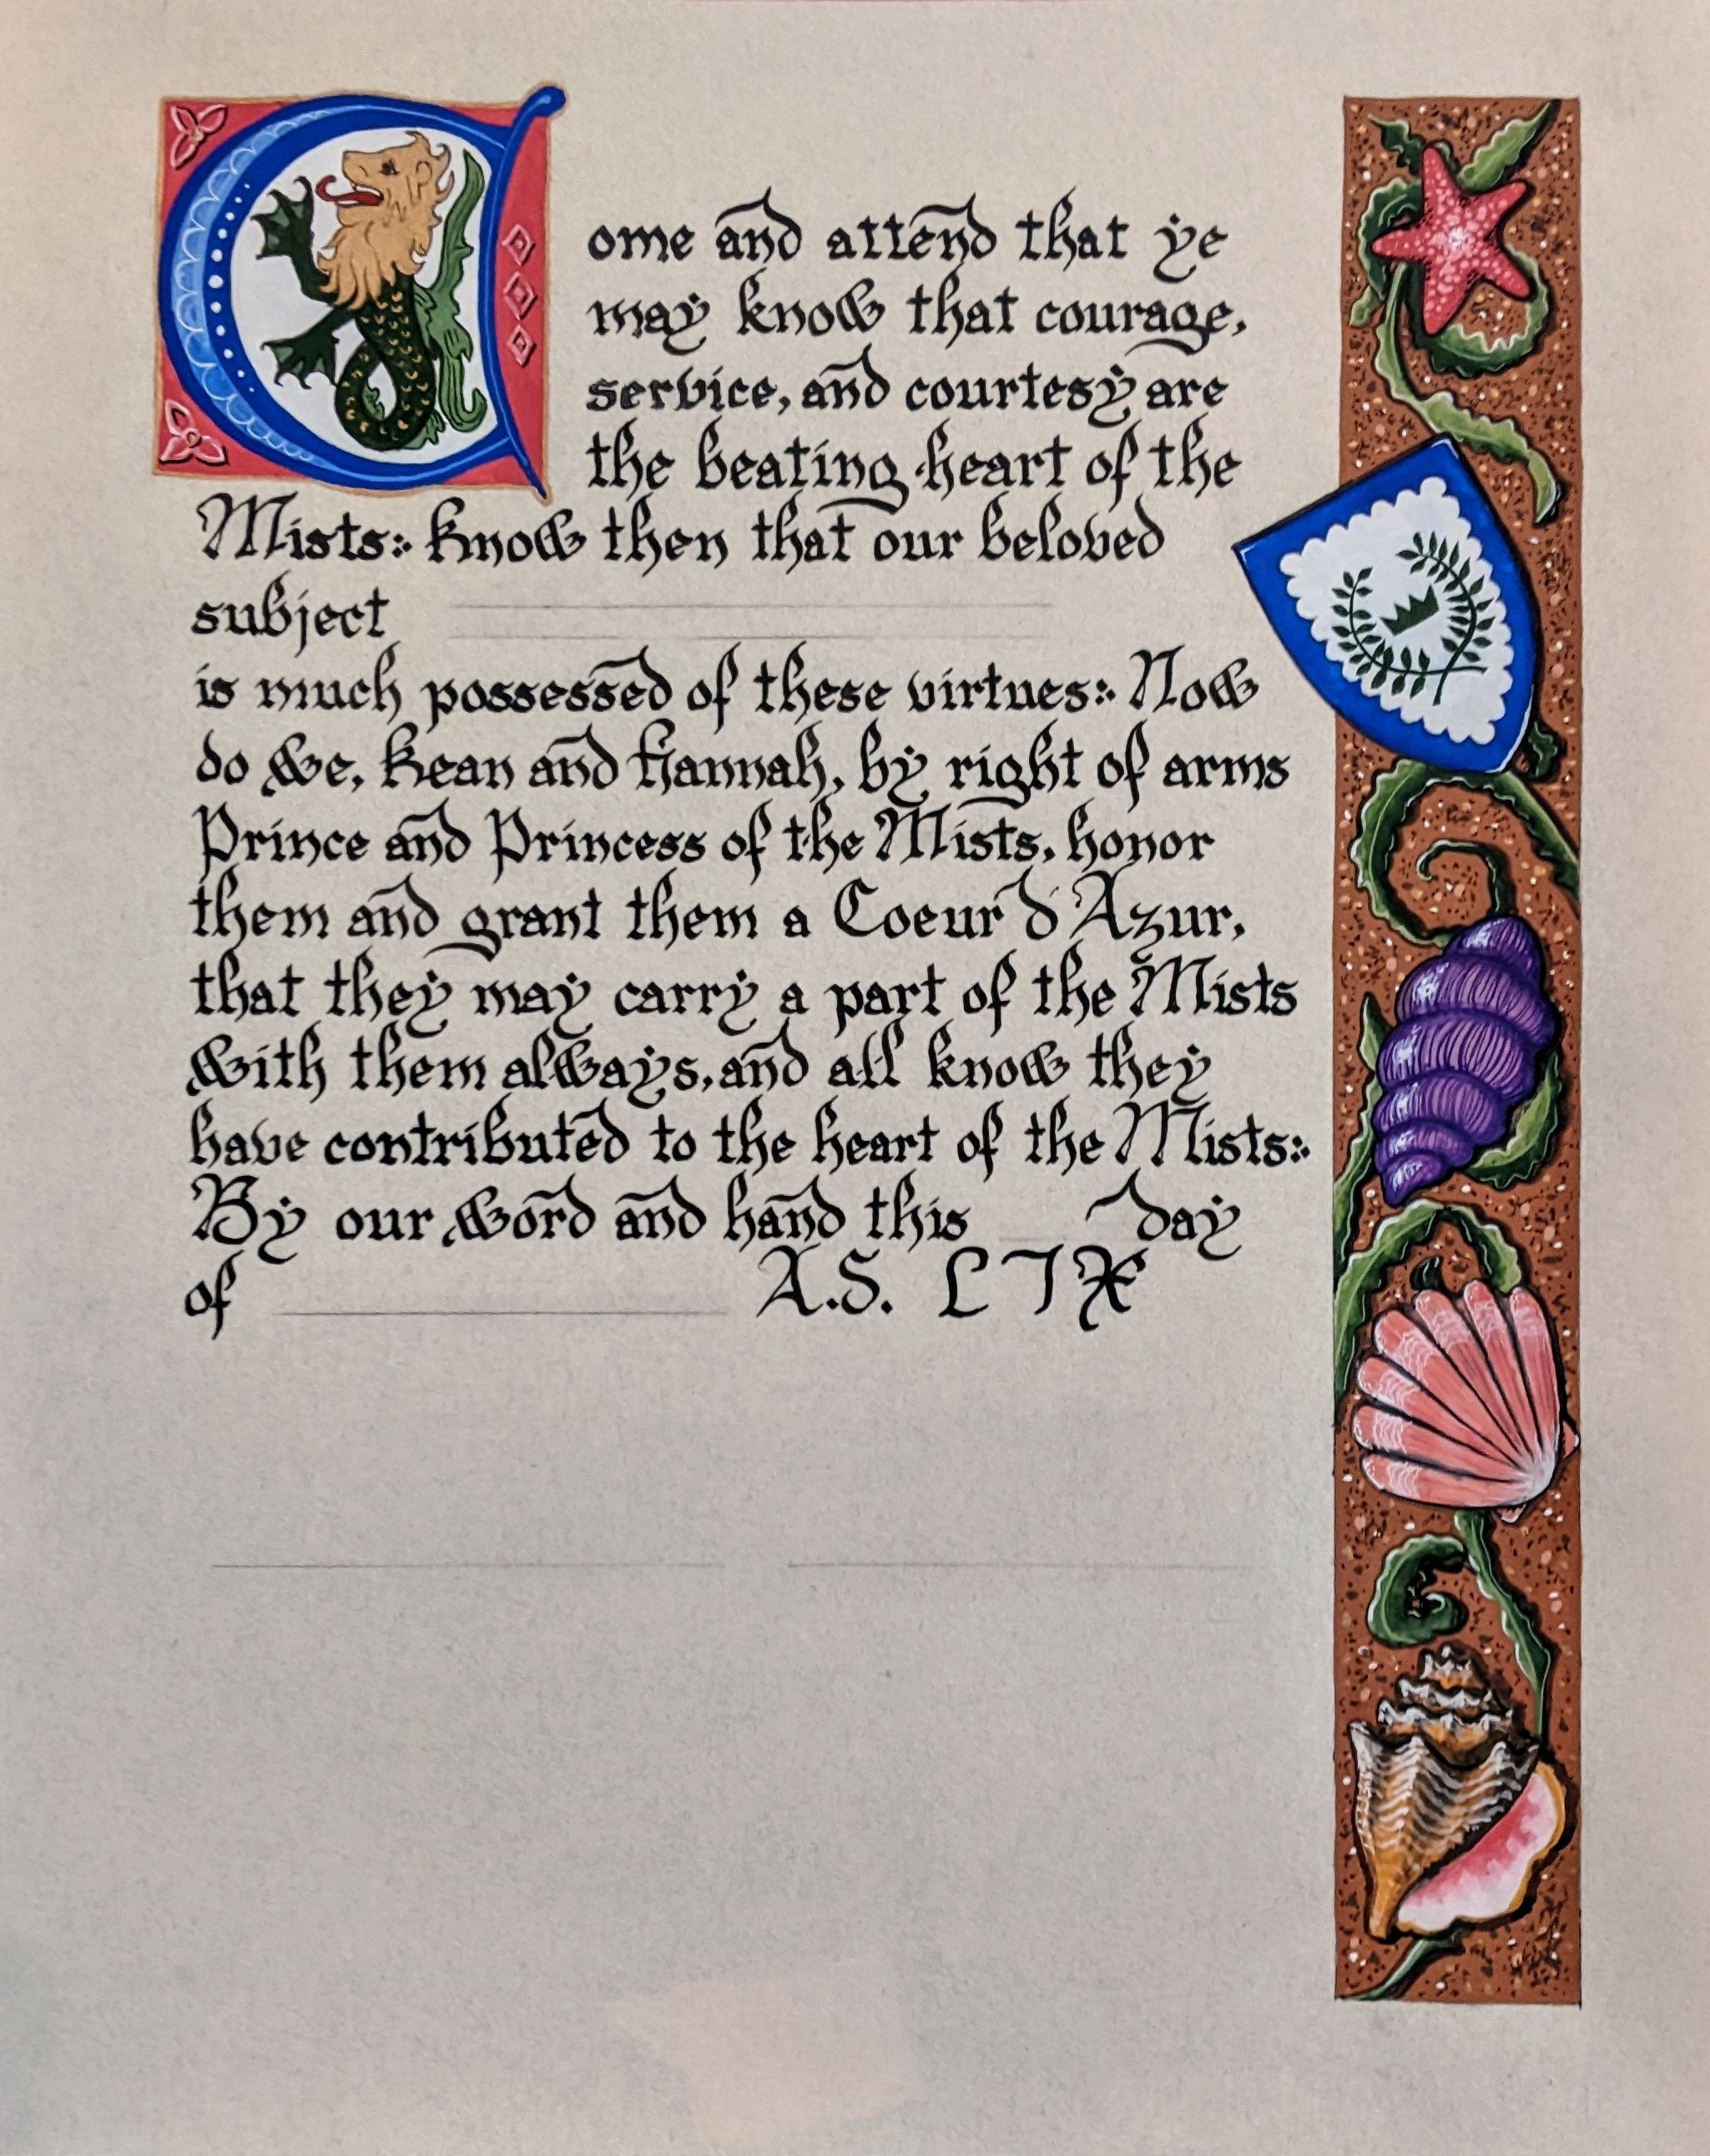 Come and attend that ye
may know that courage,
service, and courtesy are
the beating heart of the
Mists: know then that our beloved
subject
is much possessed of these virtues: Now
do we, Kean and Hannah, by right of arms
Prince and Princess of the Mists, honor
them and grant them a Coeur d'Azur,
that they may carry a part of the Mists
with them always, and all know they
have contributed to the heart of the Mists:
By our word and hand this day
of A.S. LIX